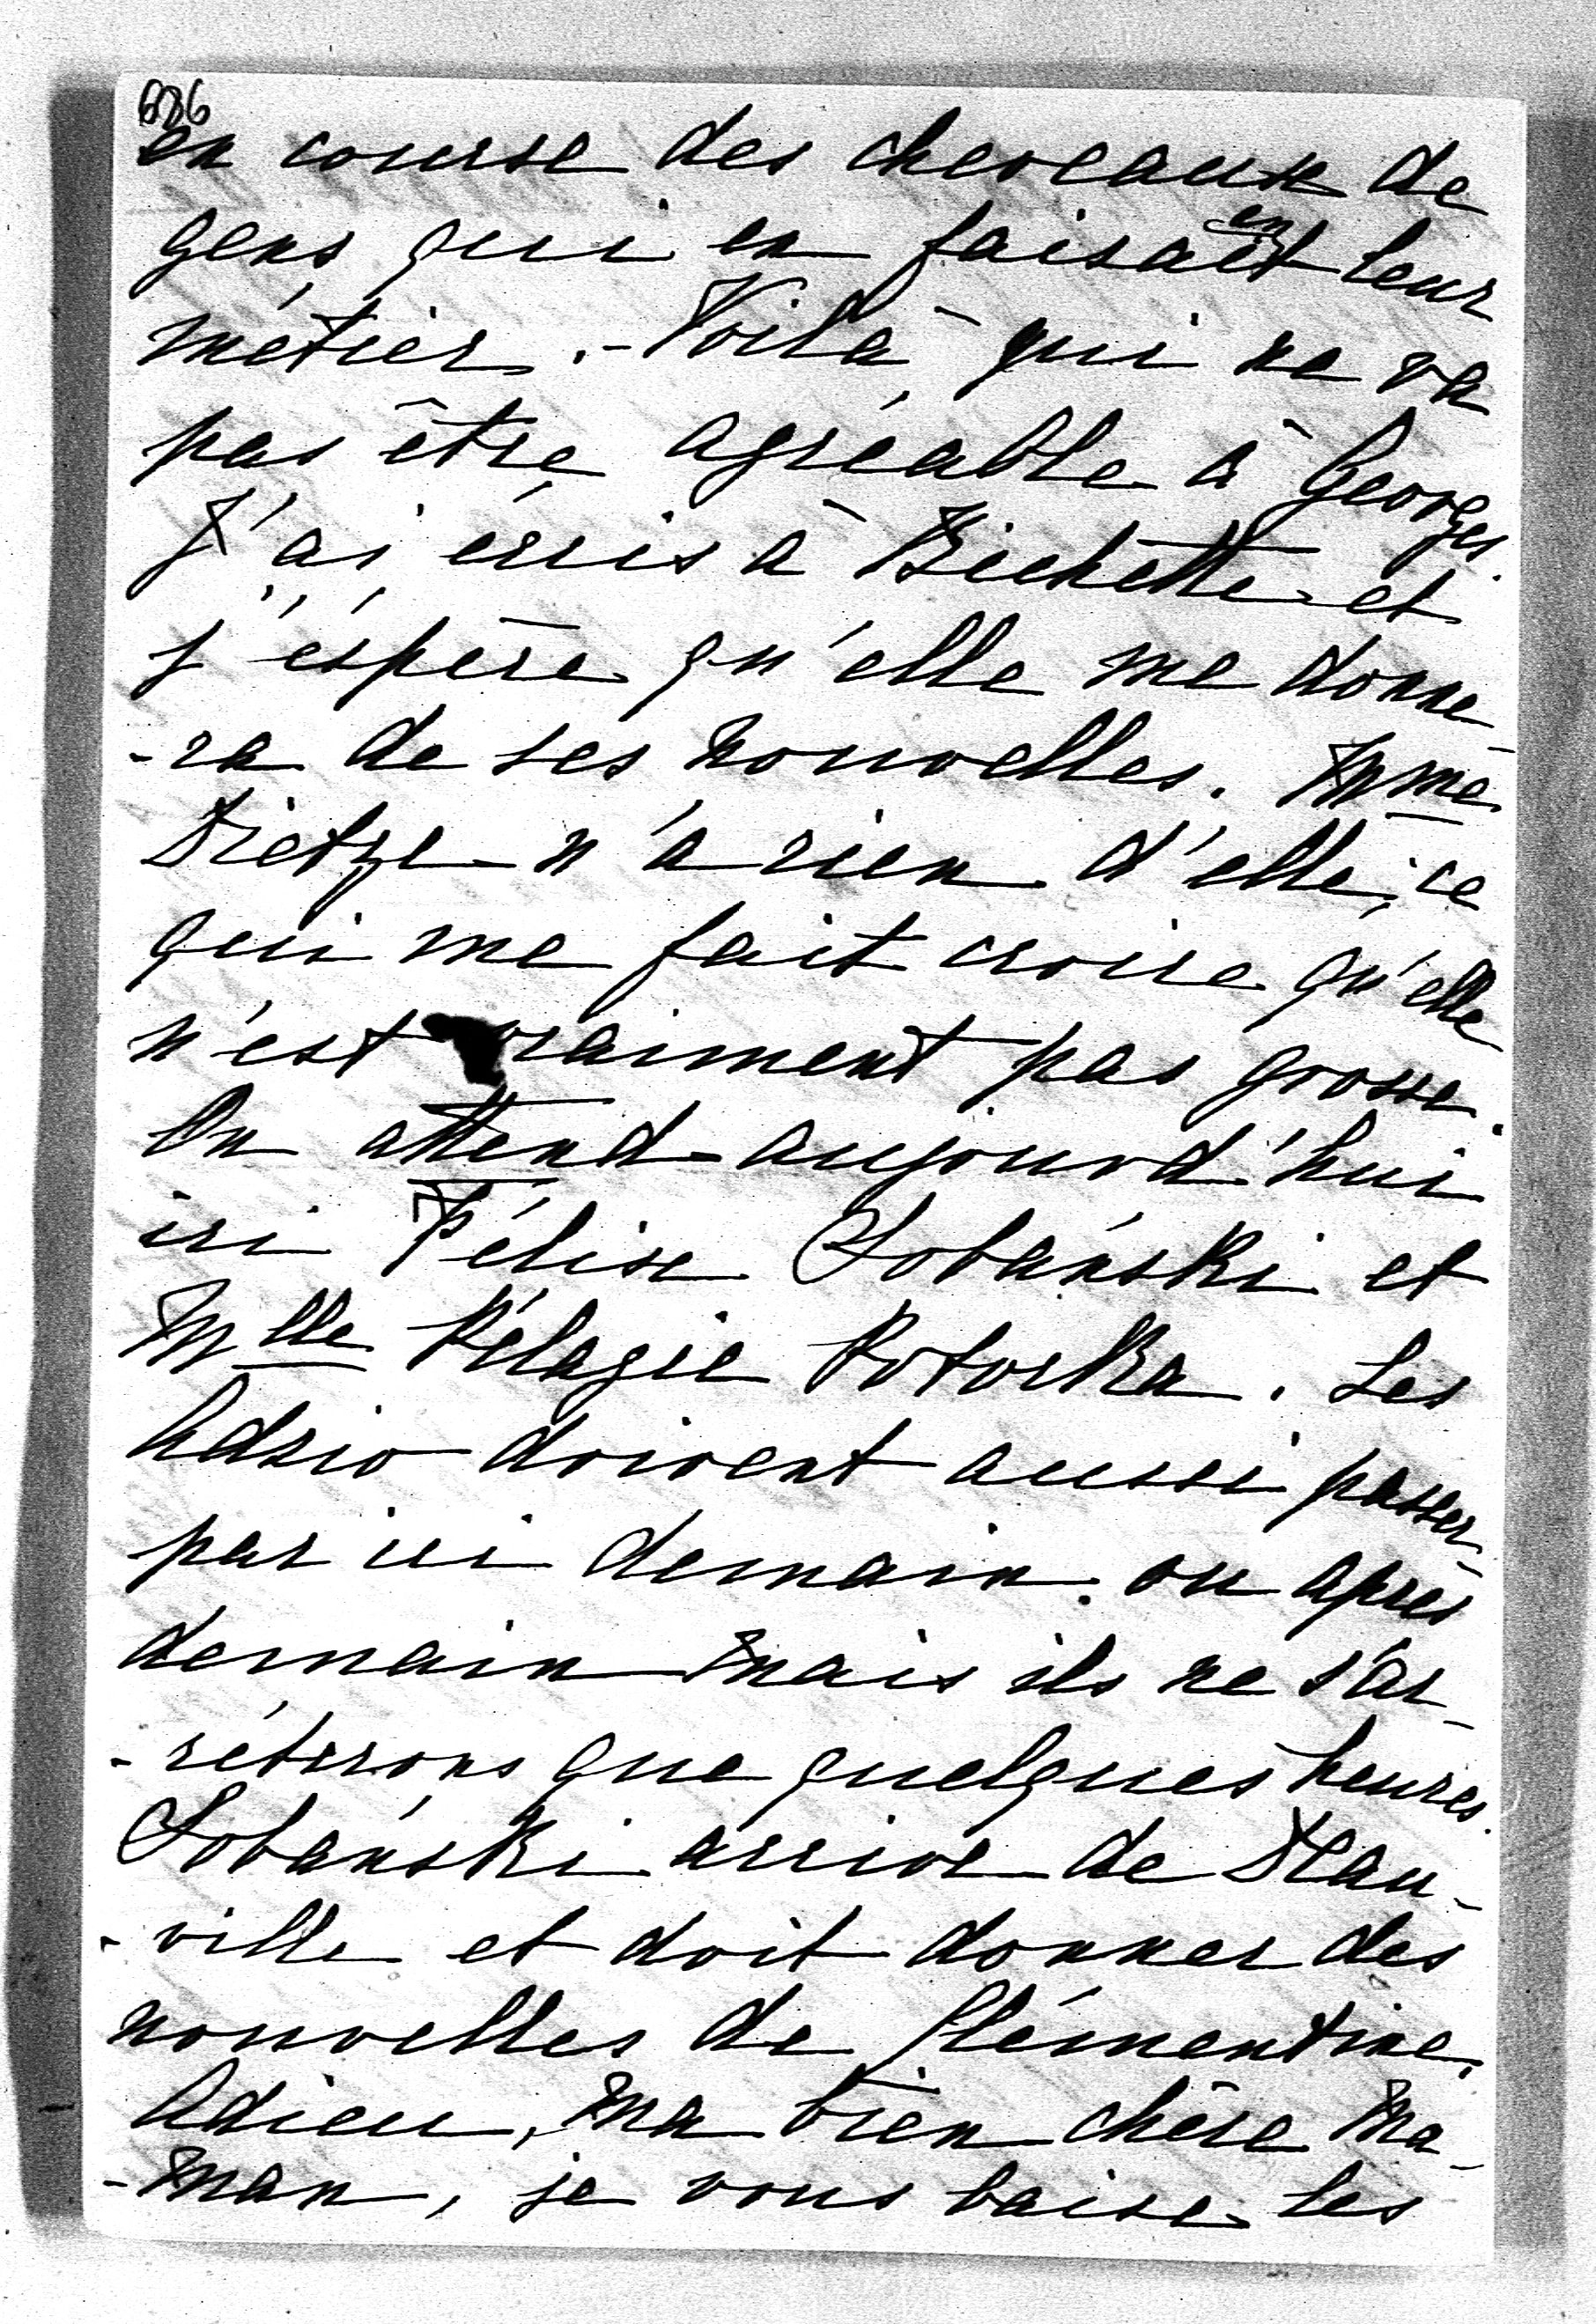 686
en course des cheveaux de
gens, qui en faisaient leur
métier. - Voilà qui ne va
pas être agréable à Georges.
J'ai écris à Bichette et
j'éspère qu'elle me donne-
-ra de ses nouvelles. Mme
Dietze n'a rien d'elle, ce
qui me fait croire qu'elle
n'est vraiment pas grosse.
On attend aujourd'hui
ici Félise Lobański et
Mlle Pélagie Potocka. Les
Adzio doivent aussi passer
par ici demain ou après
demain mais ils ne s'ar-
-réterons que quelques heures.
Lobański arrive de Deau-
-ville et doit donner des
nouvelles de Clémentine.
Adieu, ma bien chère Ma-
-man, je vous baise les